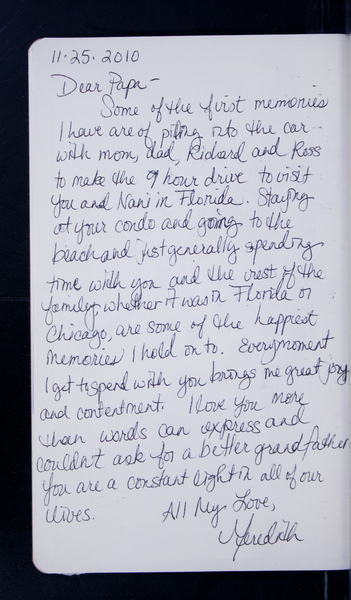 11.25.2010
Dear Papa-
Some of the first memories
I have are of piling into the car
with mom, dad, Richard and Ross
to make the 9 hour drive to visit
you and Nani in Florida. Staying
at your condo and going to the
beach and just generally spending
time with you and the rest of the
family, whether it was in Florida or
Chicago, are some of the happiest
memories I hold on to. Every moment
I get to spend with you brings me great joy
and contentment. I love you more
than words can express and
couldn't ask for a better grandfather.
You are a constant light in all of our
lives.
All My Love,
Meredith